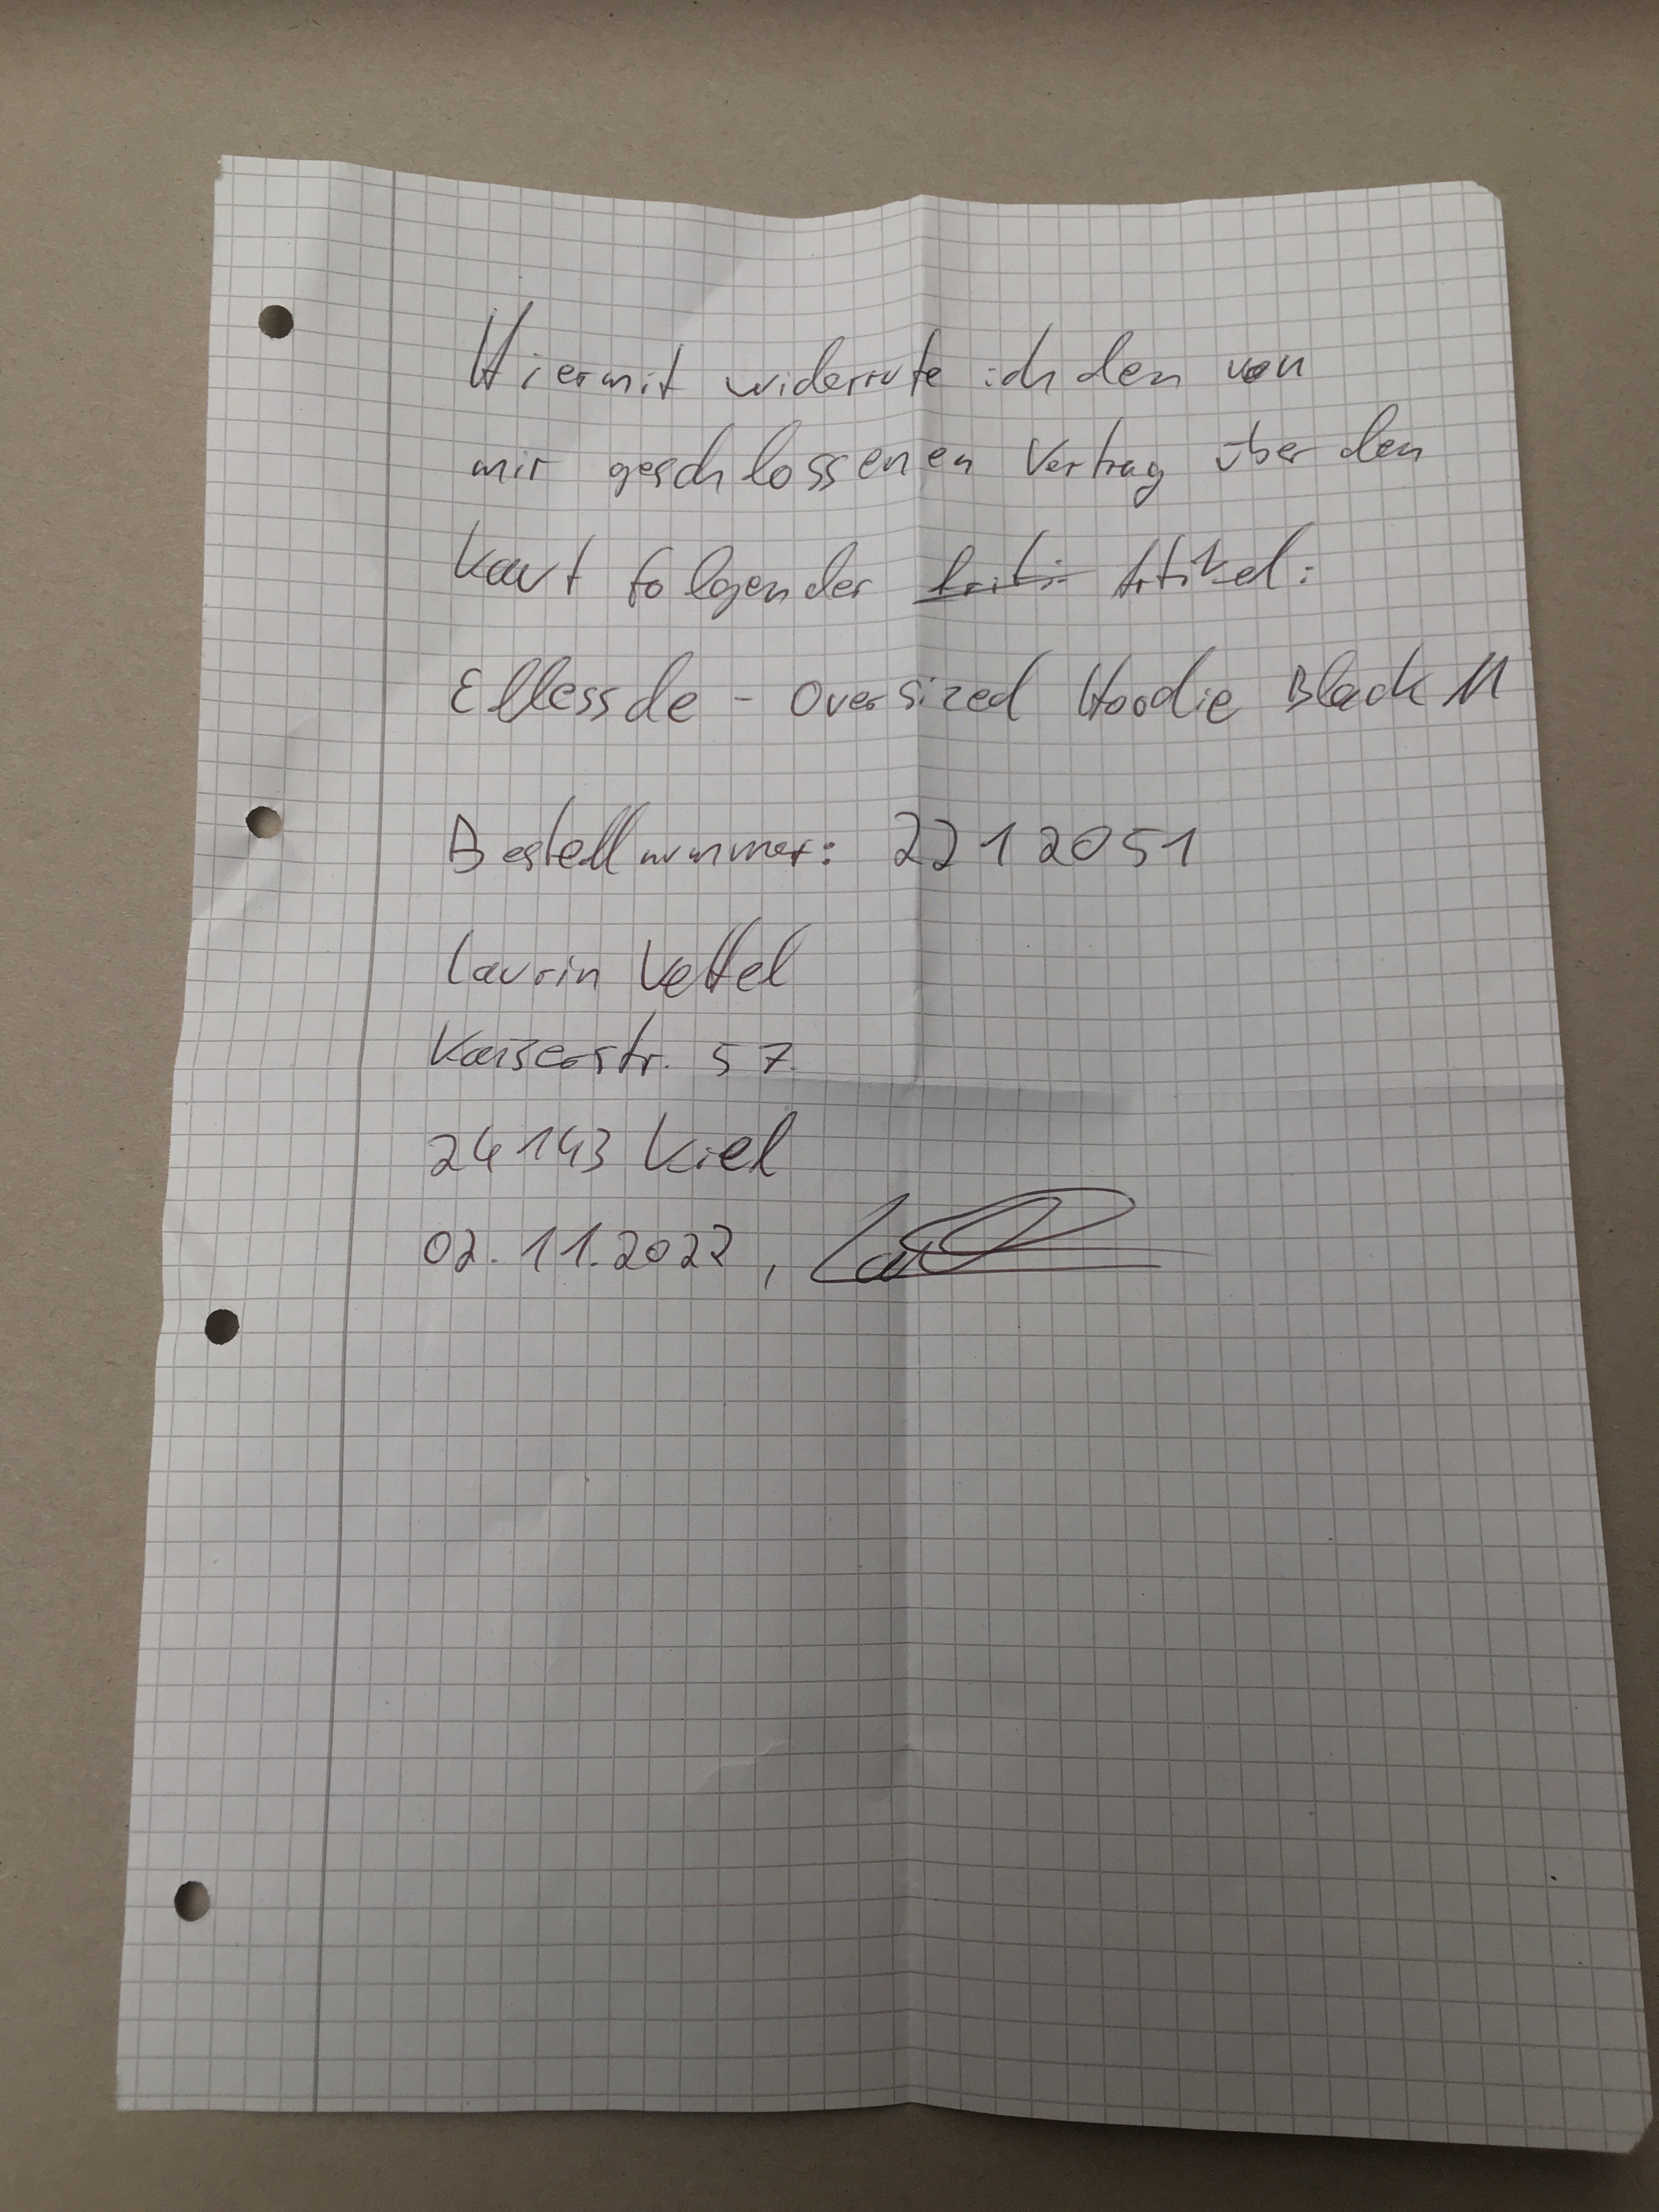 Hiermit widerrufe ich den von
mir geschlossenen Vertrag über den
Kauf folgender Artikel:
Ellessde - Oversized Hoodie Black M
Bestellnummer: 2212051
Laurin Vettel
Kaiserstr. 57
24143 Kiel
02.11.2022,